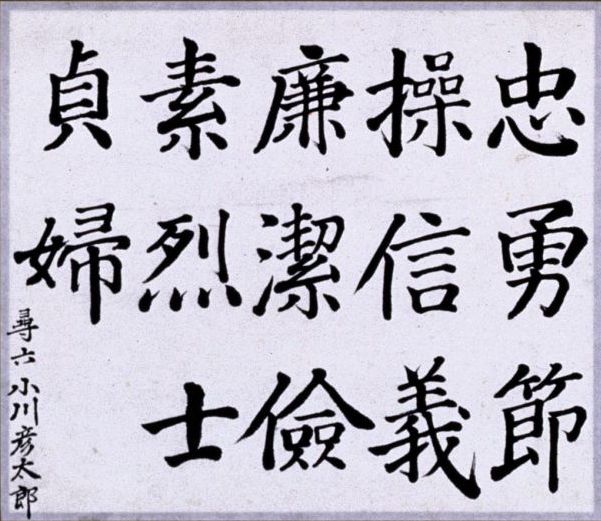 忠勇節
操信義
廉潔儉
素烈士
貞婦
尋六 小川彦太郎